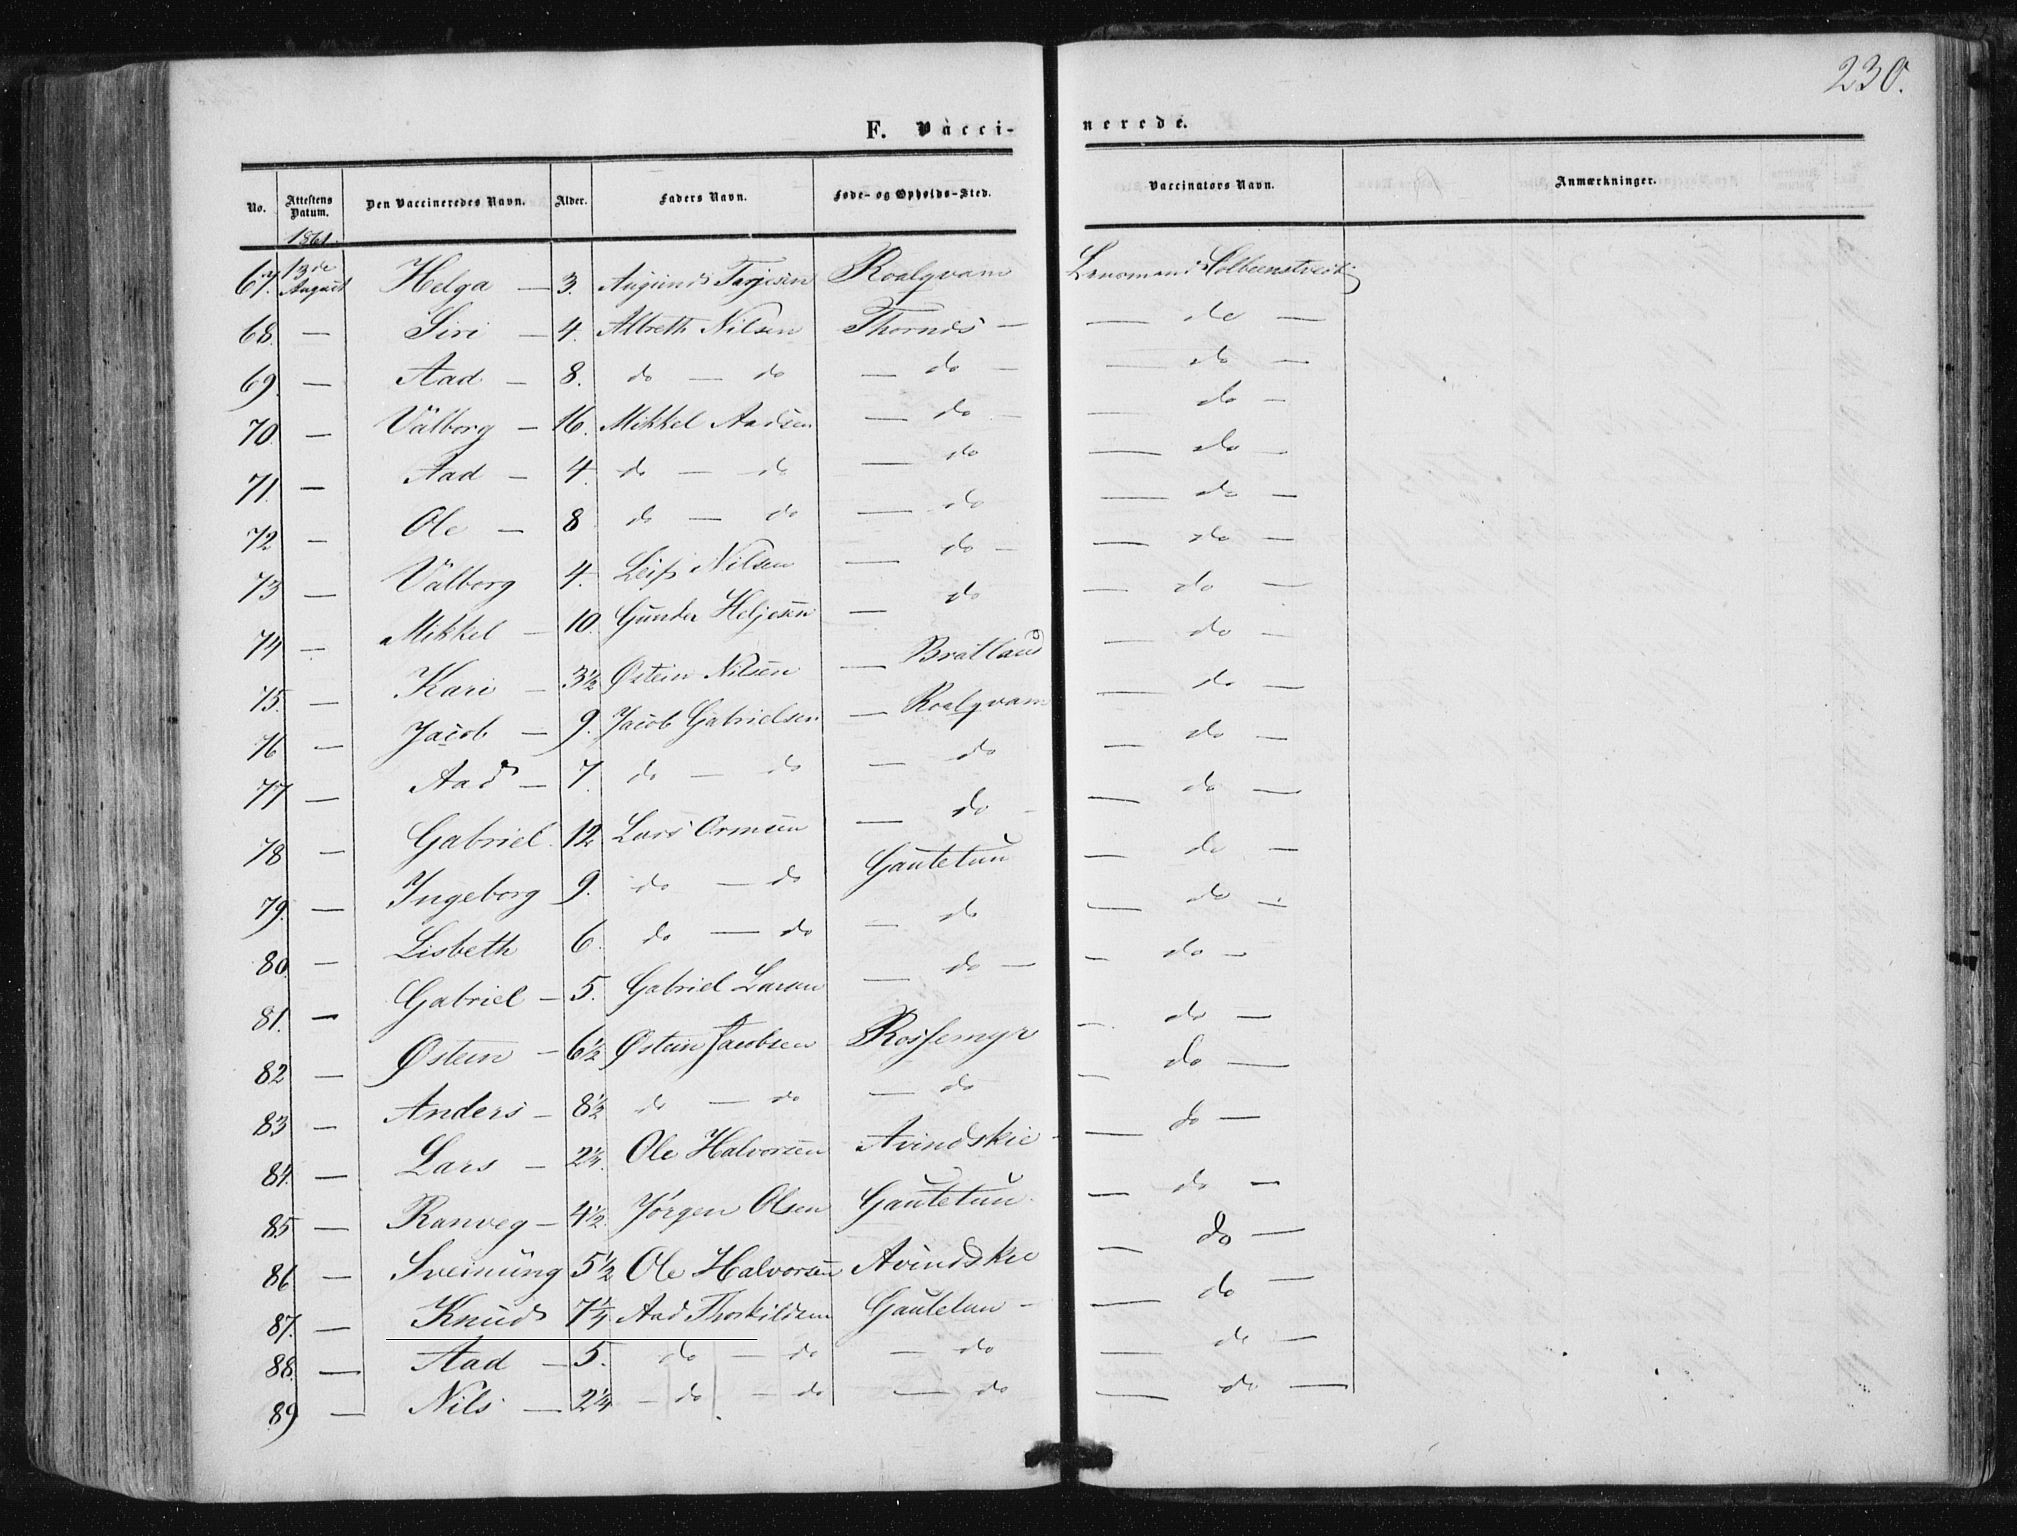 230.
F. Vacci-nerede.
No. Attestens Datum. Den Vaccineredes Navn. Alder. Faders Navn. Føde- og Opholds-Sted. Vaccinators Navn. Anmærkninger.
1861.
67. 13de August Helga — 3. Augund Tarjesen Roalqvam
68. — Siri — 4. Albreth Nilsen Thornæs — — do —
69. — Aad — 8. do — do — do — — do —
70. — Valborg — 16. Mikkel Aadsen — do — — do —
71. — Aad — 4. do — do — do — do —
72 — Ole — 8 do — do — do — do —
73 — Valborg 4. Leif Nilsen — do — — do —
74 — Mikkel — 10. Gunder Heljesen — do — do —
75. — Kari — 3½ Østein Nilsen — Bratland — do —
76 — Jacob — 9. Jacob Gabrielsen — Roalqvam — do —
77 — Aad — 7. do — do — do — do —
78 — Gabriel 12 Lars Ormsen — do — — do —
79. — Ingeborg 9. do — do Gautetun — do —
80. — Lisbeth 6. do — do — do — do —
81. — Gabriel — 5. Gabriel Larsen — do — — do —
82 — Østein — 6½ Østein Jacobsen Rossemyr — do —
83 — Anders — 8½ do — do — do — do —
84. — Lars — 2¼ Ole Halvorsen Avindskie — — do —
85 — Ranveg — 4½ Jørgen Olsen Gautetun — do —
86 — Sveinung 5½ Ole Halvorsen Avindskie — do —
87. — Knud 7¼ Aad Thorkildsen Gautetun — — do —
88. — Aad — 5. do — do — do — do —
89 — Nils — 2¼ — do — do — do — do —